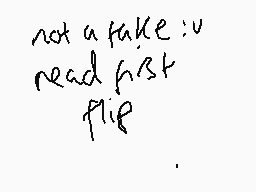 not a fake :v
read first
flip